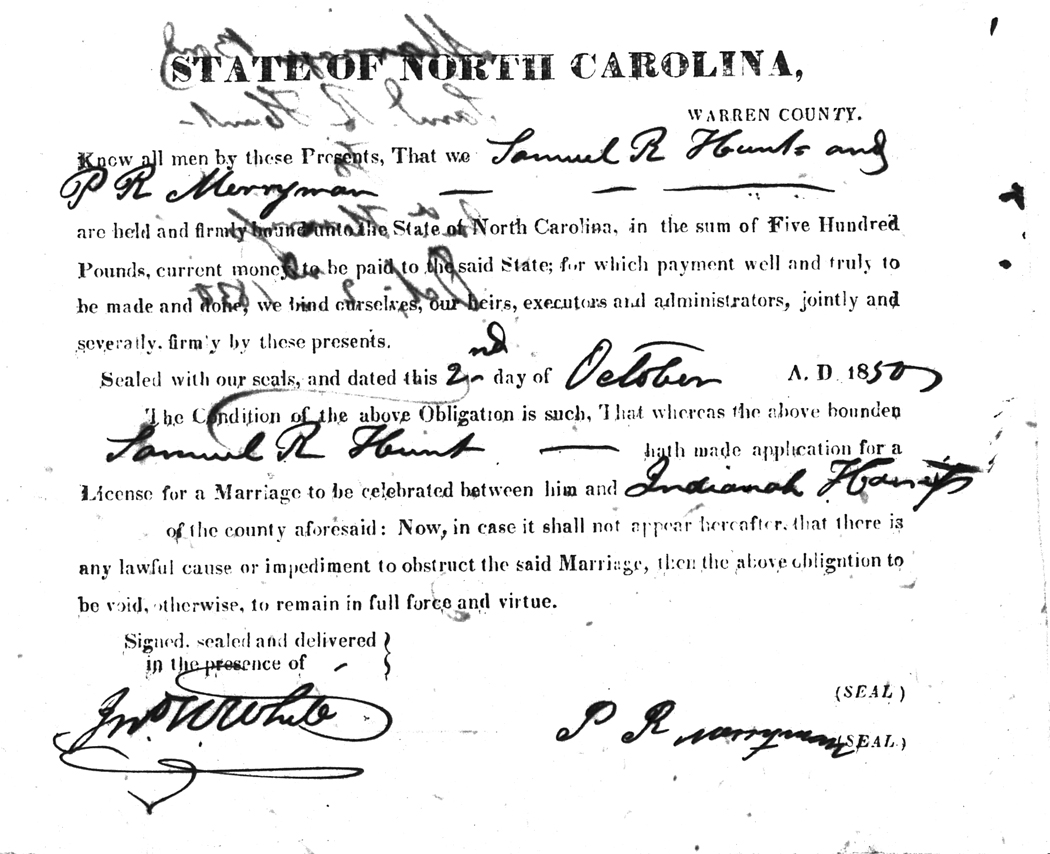 STATE OF NORTH CAROLINA,
WARREN COUNTY.
Know all men by these Presents, That we Samuel R Hunt and
P R Merryman
are held and firmly bound unto the State of North Carolina, in the sum of Five Hundred
Pounds, current money, to be paid to the said State; for which payment well and truly to
be made and done, we bind ourselves, our heirs, executors and administrators, jointly and
severally. firmly by these presents.
Sealed with our seals, and dated this 2nd day of October A. D 1850
The Condition of the above Obligation is such, That whereas the above bounden
Samuel R Hunt hath made application for a
License for a Marriage to be celebrated between him and Indianah
of the county aforesaid: Now, in case it shall not appear hereafter, that there is
any lawful cause or impediment to obstruct the said Marriage, then the above obligation to
be void, otherwise, to remain in full force and virtue.
Signed, sealed and delivered
in the presence of
(SEAL)
Jno. W White P R Merryman (SEAL)